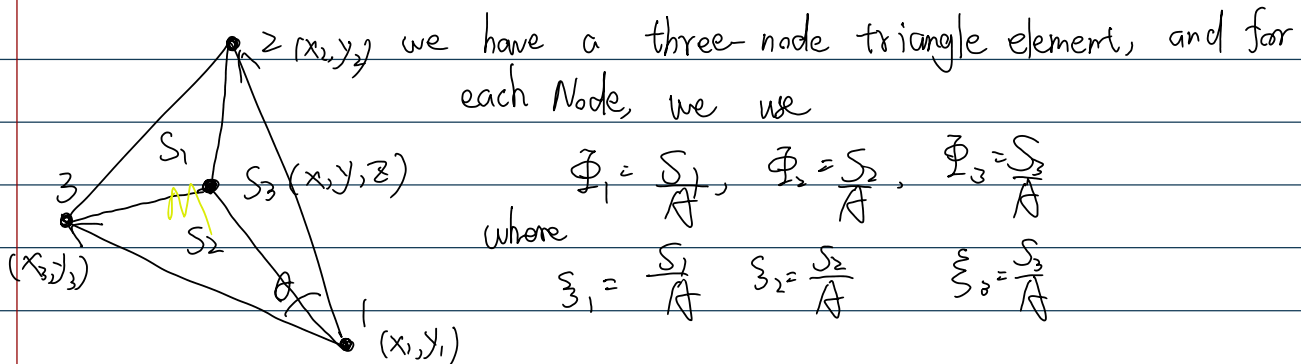 2 (x₂,y₂) we have a three-node triangle element, and for
each Node, we use
S₁
Φ₁ = S₁/A, Φ₂ = S₂/A, Φ₃ = S₃/A
3 S₃ (x,y,z)
S₂ where
(x₃,y₃)
ξ₁ = S₁/A ξ₂ = S₂/A ξ₃ = S₃/A
θ
1 (x₁,y₁)